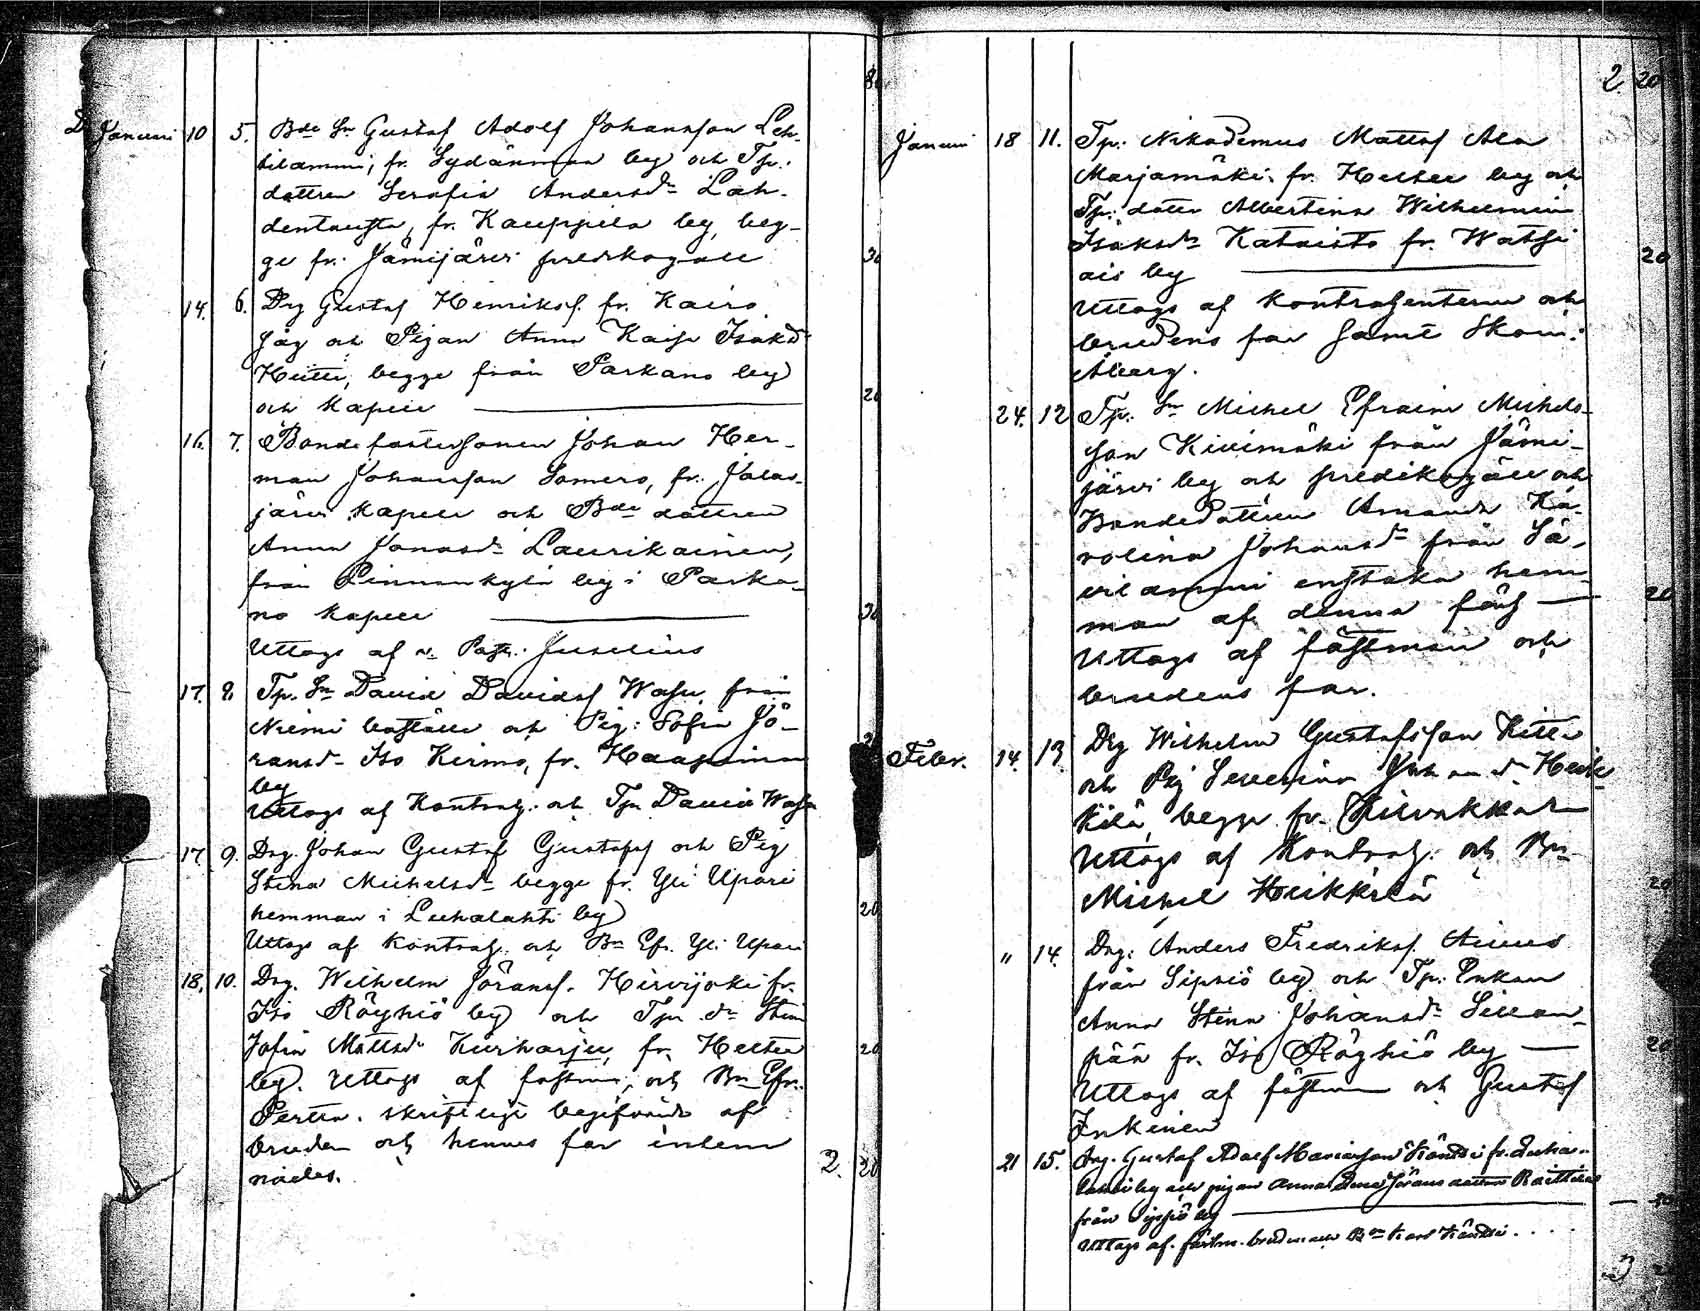 80
Januari 10 5. Bde Sn Gustaf Adolf Johansson Leh-
tilammi, fr. Sydänmaa by och Tp.
dottren Serafia Andersdr Lah-
dentausta, fr. Kauppila by, beg-
ge fr. Jämijärvi predikogäll 30
14. 6. Drg Gustaf Henrikss. fr. Kairo
och Pigan Anna Kaisa Isaksdr
Heitti, begge från Parkano by
och Kapell 20
16. 7. Bondefostersonen Johan Her-
man Johansson Somero, fr. Jalas-
järvi Kapell och Bde dottren
Anna Jonasdr Laurikainen,
från Linnankylä by i Parka-
no Kapell 30
Uttogs af v. Past. Juselius
17. 8. Tp. Sn David Davidss Wasu från
Niemi boställe och Pig: Sofia Jö-
ransdr Iso Kermo, fr. Haapimaa
by
Uttogs af Kontrah. och Tpn David Wasu
17. 9. Drg. Johan Gustaf Gustafss och Pig
Stina Michelsdr begge fr. Yli Upari
hemman i Luhalahti by 20
Uttogs af Kontrah. och Bn Efr. Yli Upari
18. 10. Drg. Wilhelm Jöranss. Hirvijoki fr.
Iso Röyhiö by och Tpn dr Stina
Sofia Mattsdr Kurharju, fr. Heittee 20
by. Uttogs af fästm. och Bn Efr.
Perttu. skriftligt begifvande af
bruden och hennes far inlem
nades. 2. 20
2 20
Januari 18 11. Tp. Nikodemus Mattss Ala
Marjamäki fr. Heittee by och
Tp. dotter Albertina Wilhelmina
Isaksdr Kataisto fr. Watsi
ais by 20
Uttogs af Kontrahenterna och
brudens far samt Skom:
Åberg.
24. 12 Tp. Sn Michel Efraim Michels-
son Kivimäki från Jämi-
järvi by och predikogäll och
Bondedottren Amanda Ka-
rolina Johansdr från Sä-
vilammi enstaka hem-
man af denna förs 20
Uttogs af fästman och
brudens far.
Febr. 14. 13. Drg Wilhelm Gustafsson Kitti
och Pig Severina Johansdr Heik-
kilä, begge fr. Kilvakkala
Uttogs af Kontrah. och Bn
Michel Heikkilä 20
" 14. Drg. Anders Fredrikss.
från Sipsiö by och Tp. Enkan
Anna Stina Johansdr Sillan-
pää fr. Iso Röyhiö by 20
Uttogs af fästman och Gustaf
Inkinen
21 15. Drg. Gustaf Adolf Mariasson Händi fr. Luha-
lahti by och pigan Anna Lena Jörans dotter Raittila
från Sipsiö by 20
Uttogs af fästm. bruden och Bn Karl Händi
3 20